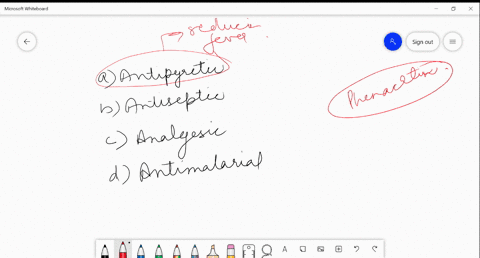 Microsoft Whiteboard
Sign out
reduces
fever.
a) Antipyretic
b) Antiseptic
c) Analgesic
d) Antimalarial
Phenacetin